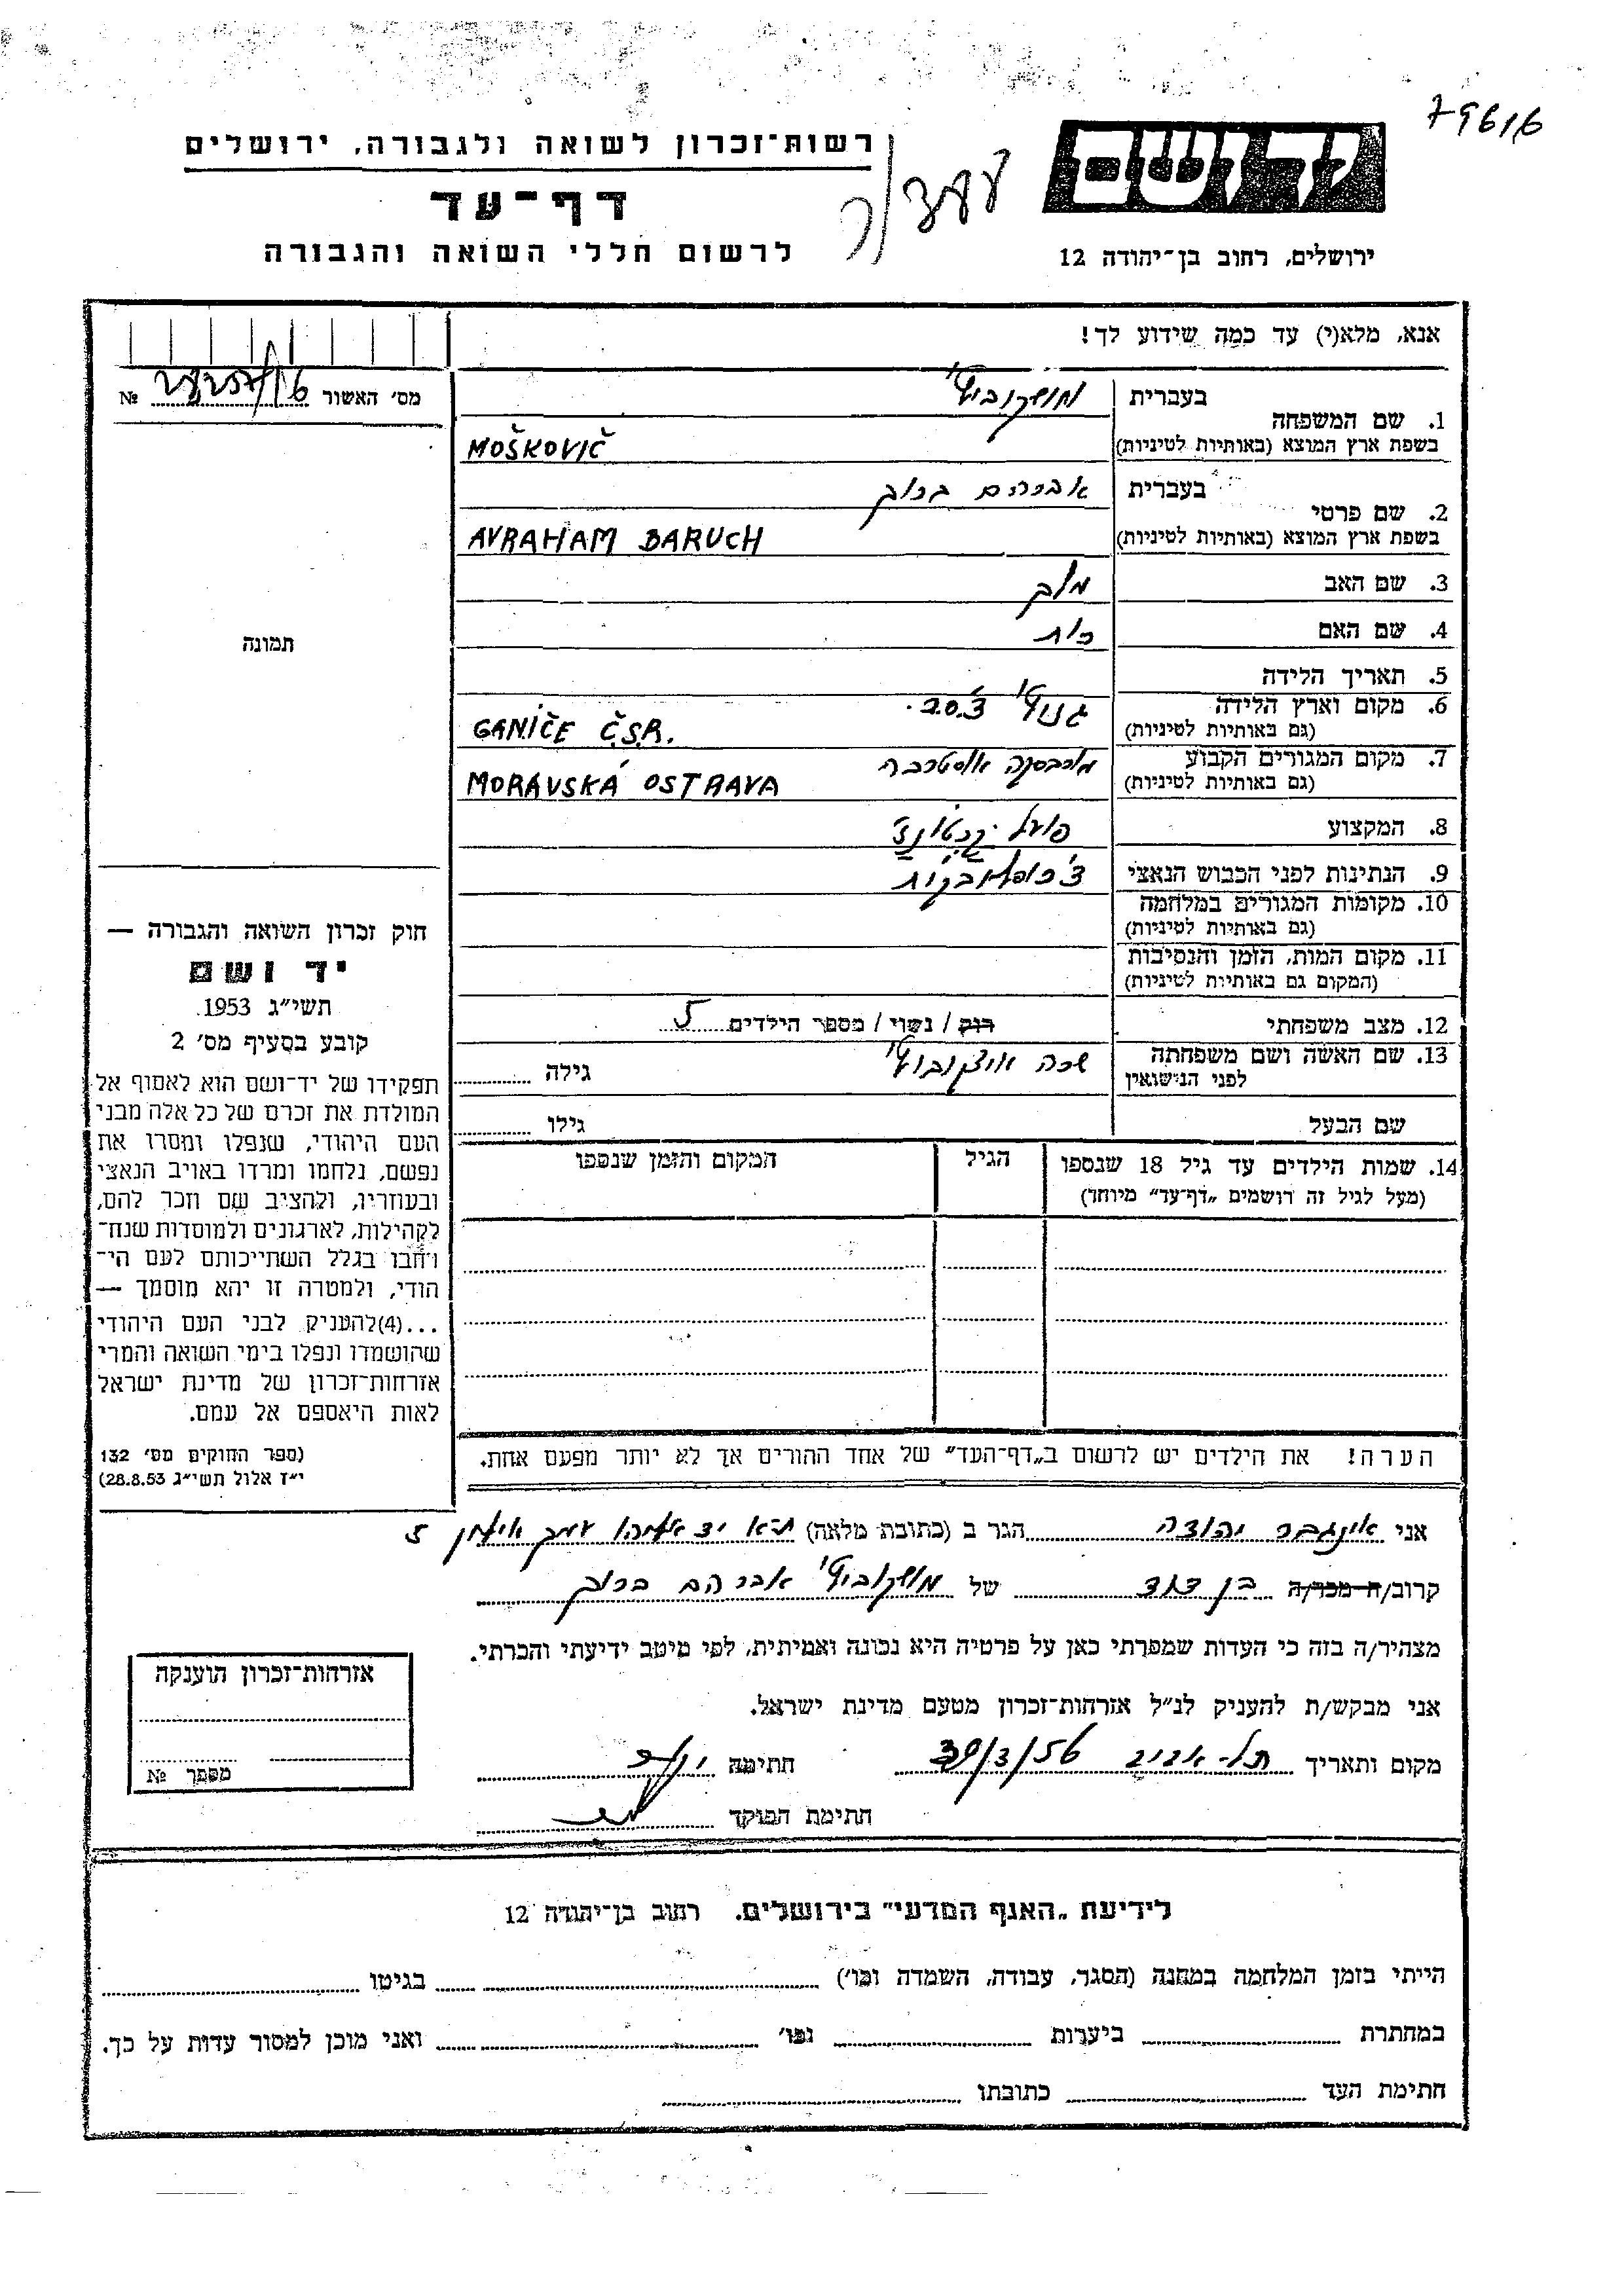 79616
רשות־זכרון לשואה ולגבורה, ירושלים
דף־עד
לרשום חללי השואה והגבורה
יד ושם
ירושלים, רחוב בן־יהודה 12
אנא, מלא(י) עד כמה שידוע לך!
מס' האשור № 16
1. שם המשפחה
בעברית מושקוביץ'
בשפת ארץ המוצא (באותיות לטיניות) MOŠKOVIČ
2. שם פרטי
בעברית אברהם ברוך
בשפת ארץ המוצא (באותיות לטיניות) AVRAHAM BARUCH
3. שם האב
4. שם האם רות
5. תאריך הלידה
6. מקום וארץ הלידה
(גם באותיות לטיניות) GANIČE Č.S.R.
7. מקום המגורים הקבוע מורבסקה אוסטרבה
(גם באותיות לטיניות) MORAVSKÁ OSTRAVA
8. המקצוע פועל
9. הנתינות לפני הכבוש הנאצי
10. מקומות המגורים במלחמה
(גם באותיות לטיניות)
11. מקום המות, הזמן והנסיבות
(המקום גם באותיות לטיניות)
12. מצב משפחתי רוק / נשוי / מספר הילדים 5
13. שם האשה ושם משפחתה שרה איצקוביץ' גילה
לפני הנישואין
שם הבעל גילו
14. שמות הילדים עד גיל 18 שנספו הגיל המקום והזמן שנספו
(מעל לגיל זה רושמים „דף־עד" מיוחד)
הערה! את הילדים יש לרשום ב„דף־העד" של אחד ההורים אך לא יותר מפעם אחת.
תמונה
חוק זכרון השואה והגבורה —
יד ושם
תשי"ג 1953
קובע בסעיף מס' 2
תפקידו של יד־ושם הוא לאסוף אל
המולדת את זכרם של כל אלה מבני
העם היהודי, שנפלו ומסרו את
נפשם, נלחמו ומרדו באויב הנאצי
ובעוזריו, ולהציב שם וזכר להם,
לקהילות, לארגונים ולמוסדות שנח־
רבו בגלל השתייכותם לעם הי־
הודי, ולמטרה זו יהא מוסמך —
...(4)להעניק לבני העם היהודי
שהושמדו ונפלו בימי השואה והמרי
אזרחות־זכרון של מדינת ישראל
לאות היאספם אל עמם.
(ספר החוקים מס' 132
י"ז אלול תשי"ג 28.8.53)
אני אינגבר יהודה הגר ב (כתובת מלאה) ת"א יד אליהו
קרוב/ה מכר/ה בן דוד של מושקוביץ' אברהם ברוך
מצהיר/ה בזה כי העדות שמסרתי כאן על פרטיה היא נכונה ואמיתית, לפי מיטב ידיעתי והכרתי.
אני מבקש/ת להעניק לנ"ל אזרחות־זכרון מטעם מדינת ישראל.
מקום ותאריך תל-אביב חתימה
חתימת הפוקד
אזרחות־זכרון הוענקה
מספר №
לידיעת „האגף המדעי" בירושלים. רחוב בן־יהודה 12
הייתי בזמן המלחמה במחנה (הסגר, עבודה, השמדה וכו') בגיטו
במחתרת ביערות וכו' ואני מוכן למסור עדות על כך.
חתימת העד כתובתו